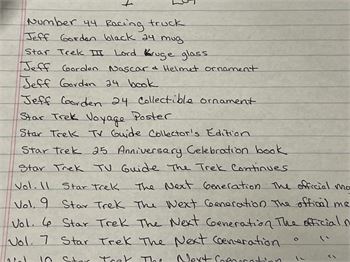 Number 44 Racing truck
Jeff Gorden black 24 mug
Star Trek III Lord Kruge glass
Jeff Gorden Nascar & Helmet ornament
Jeff Gorden 24 book
Jeff Gorden 24 Collectible ornament
Star Trek Voyage Poster
Star Trek TV Guide Collector's Edition
Star Trek 25 Anniversary Celebration book
Star Trek TV Guide The Trek Continues
Vol. 11 Star Trek The Next Generation The official
Vol. 9 Star Trek The Next Generation The official
Vol. 6 Star Trek The Next Generation The official
Vol. 7 Star Trek The Next Generation " "
Vol. 10 Star Trek The Next Generation " "